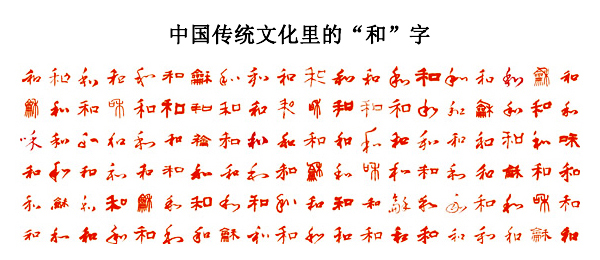 中国传统文化里的“和”字
和和和和和和龢和和和和和和和和和和和龢和
龢和和咊和和和和和和和咊和和和和龢和和和
咊和和和和和和和和和和和和和和和和和咊
和和和和和和和和和和龢和咊和和和和龢和和
和龢和和龢和和和和和和和和龢和和和和咊和
和和和和和和和龢和和和和和和和和和和龢和